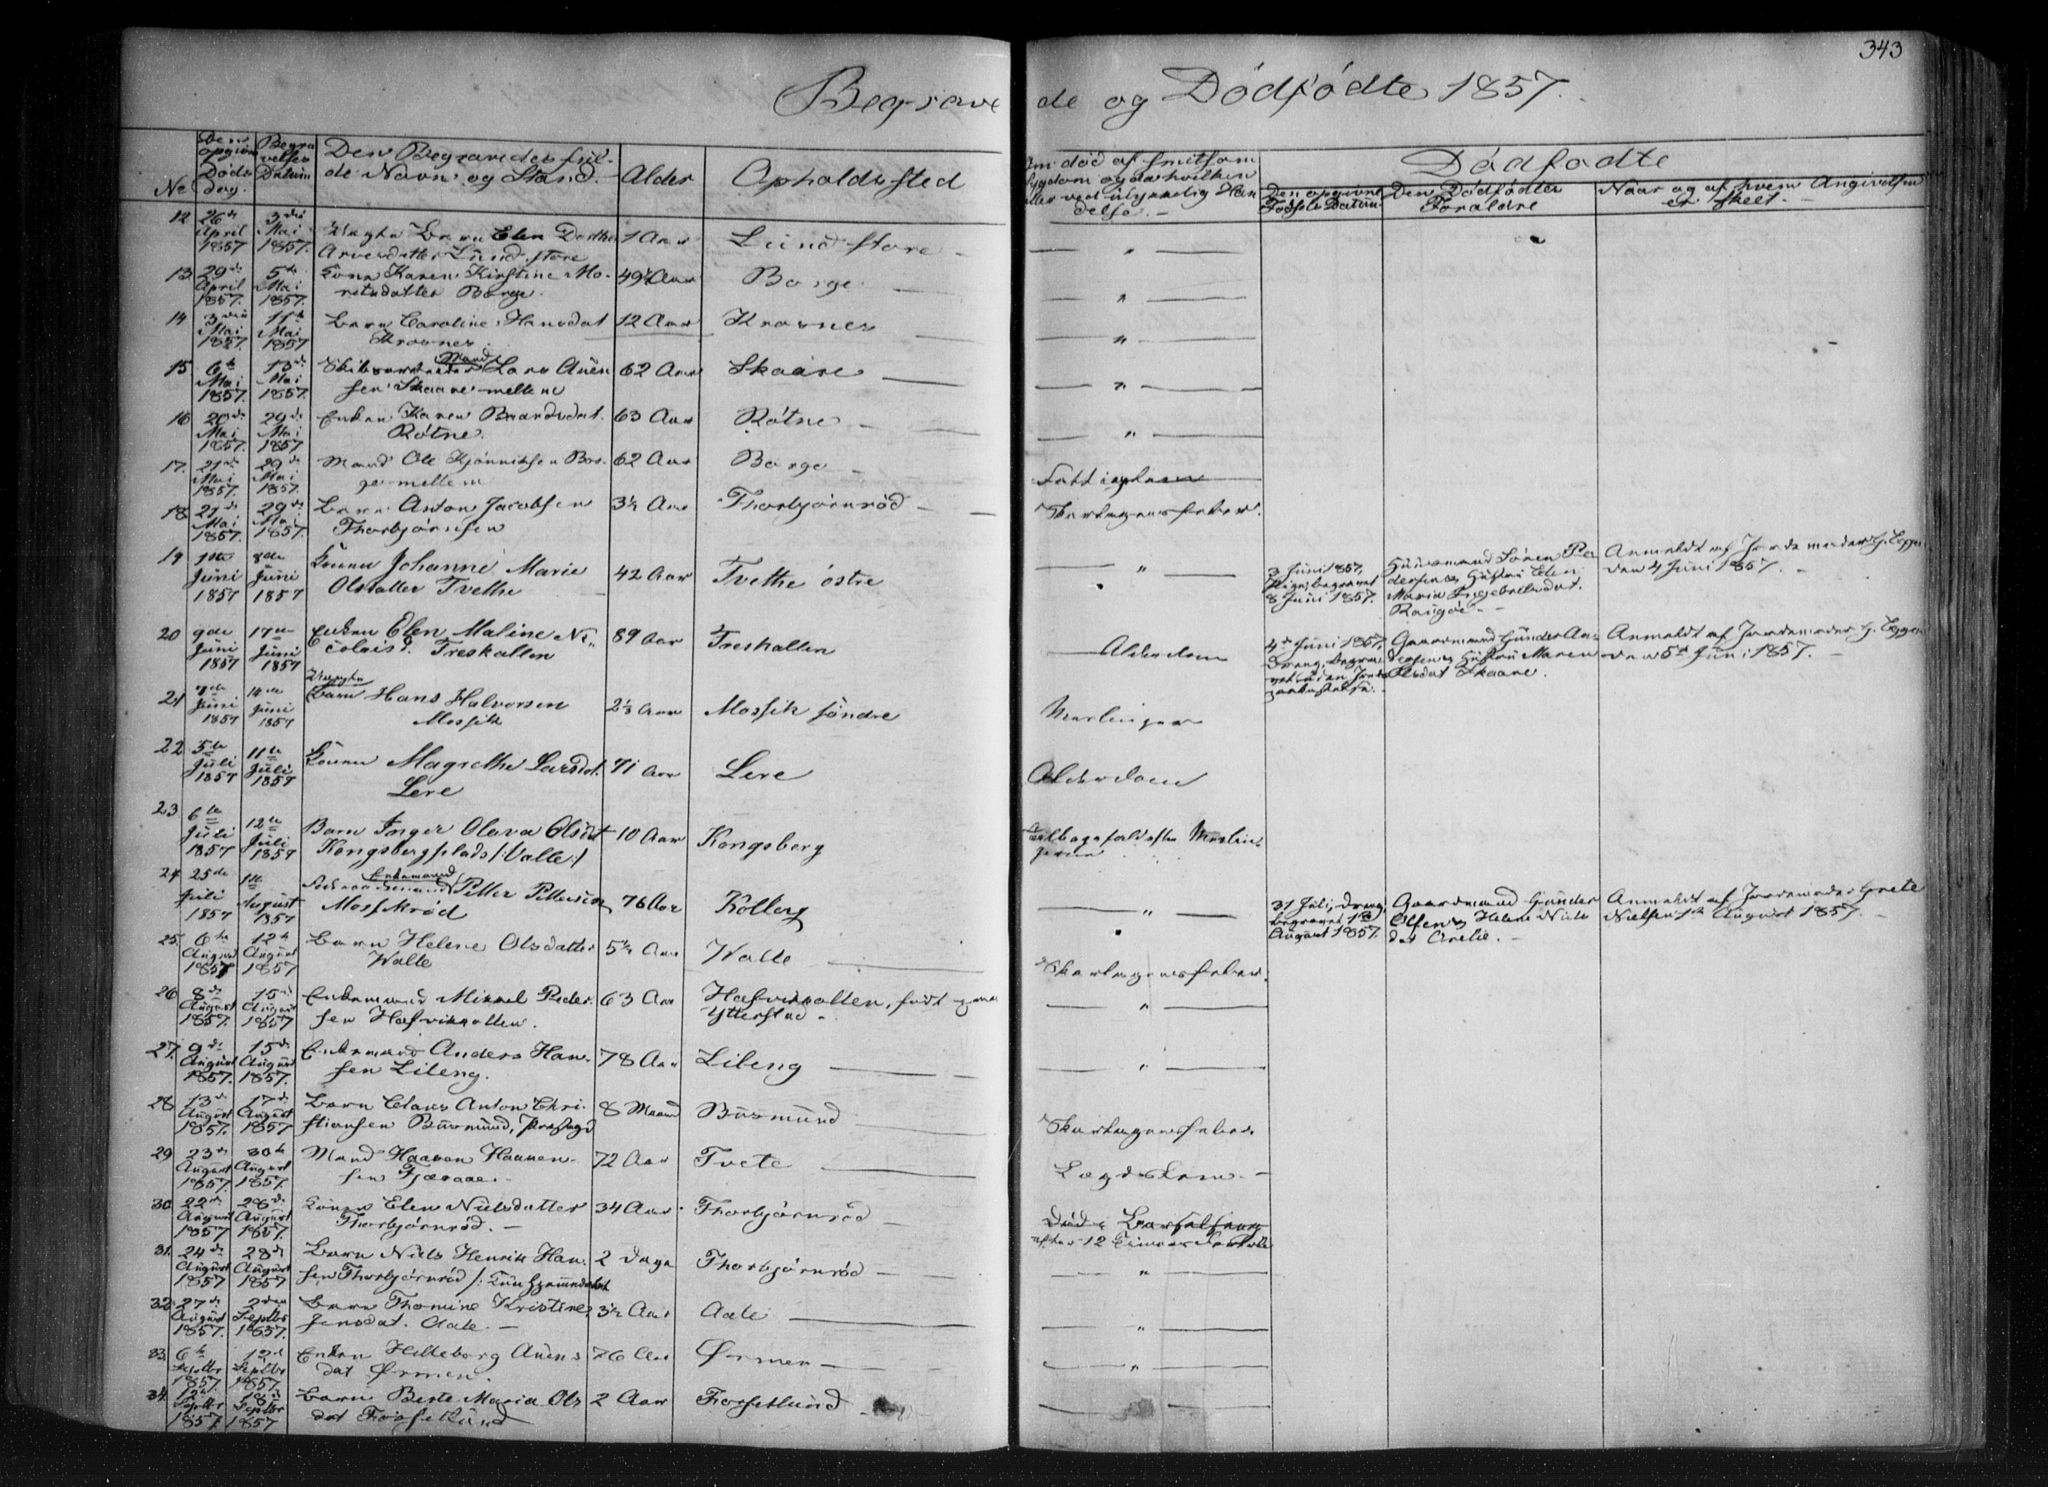 343
Begrave de og Dödfödte 1857.
No
Den opgivne Döds dag.
Begra velses Datum
Den Begravedes ful-
de Navn og Stand.
Alder
Opholdssted
Om död af smitsom
Sygdom og da hvilken
eller ved ulykkelig Hæn
delse. —
Dödfödte
Den opgivne
Födsels Datum.
Den Dödfödtes
Forældre
Naar og af hvem Angivelsen
er skeet. —
12 26de April 1857 3die Mai 1857. Barn Elen Dorthe
Arvesdatter Lund store 1 Aar Lund store — " —
13 29de April 1857. 5te Mai 1857. Kone Karen Kirstine Mo-
ritsdatter Borge. 49½ Aar Borge — " —
14 3die Mai 1857 11te Mai 1857 Barn Caroline Hansdat
Krosnes. 12 Aar Krosnes — " —
15 6te Mai 1857 13de Mai 1857. Mand Lars Auen
sen Skaare mellem 62 Aar Skaare — " —
16 20de Mai 1857. 29de Mai 1857 Enken Karen Baardsdat.
Rötne. 63 Aar Rötne — " —
17. 21de Mai 1857. 29de Mai 1857. Mand Ole Kjönniksen Bor-
ge mellem 62 Aar Borge —
18 21de Mai 1857. 29de Mai 1857. Barn Anton Jacobsen
Thorbjörnsen 3½ Aar Thorbjörnröd — Skarlagensfeber.
19 1ste Juni 1857 8de Juni 1857 Konen Johanne Marie
Olsdatter Tvethe 42 Aar Tvethe östre — " —
3 Juni 1857, Pige, begravet
8 Juni 1857.
Huusmand Sören Pe
dersen og Hustru Elen
Maria Ingebretsdat.
Raugöe —
Anmeldt af Jordemoder H. Coppen
den 4 Juni 1857. —
20 9de Juni 1857 17de Juni 1857 Enken Elen Maline Ni-
colaisd. Freskallen 89 Aar Freskallen — Alderdom
4de Juni 1857, Dreng, begra-
vet
Gaardmand Gunder An-
dersen og Hustru Maren
Olsdat Skaare.
Anmeldt af Jordemoder H. Coppen
den 5te Juni 1857. —
21 7de Juni 1857 14de Juni 1857 Uægte
Barn Hans Halvorsen
Mossik 2⅓ Aar Mossik söndre Meslinger
22 5te Juli 1857 11te Juli 1857 Konen Magrethe Larsdat.
Lere 71 Aar Lere Alderdom
23 6te Juli 1857 12te Juli 1857 Barn Inger Olava Olsdat
Kongsbergplads /: Valle :/ 10 Aar Kongsberg Tilbagefald efter Meslin-
gerne
24 25de Juli 1857 1ste August 1857 Enkemand
Petter Pettersen
Mosskröd 76 Aar Kölberg — " —
31 Juli, Dreng,
begravet 13
August 1857.
Gaardmand Gunder
Olsen og Helene Niels
dat Arelie. —
Anmeldt af Jordemoder Grete
Nielsen 1te August 1857. —
25. 6te August 1857 12te August 1857 Barn Helene Olsdatter
Walle 5½ Aar Walle — Skarlagensfeber.
26 8de August 1857. 15de August 1857 Enkemand Mikkel Peder
sen Hafviksolten. 63 Aar Hafviksolten, födt paa
Ytterstad — " —
27. 9de August 1857. 15de August 1857. Enkemand Anders Han-
sen Lileng. 78 Aar Lileng — " —
28 13de August 1857. 17de August 1857 Barn Claus Anton Chri-
stiansen Buusmund, 8 Maaned Buusmund Skarlagensfeber.
29 23de August 1857 30te August 1857 Mand Haaven Haaven-
sen Fjæraae. — 72 Aar Tvete — Lægdslem. —
30. 22de August 1857 28de August 1857. Konen Elen Nielsdatter
Thorbjörnröd. — 34 Aar Thorbjörnröd — Död i Barselseng
efter 12 Timer
31. 24de August 1857 28de August 1857 Barn Niels Henrik Han-
sen Thorbjörnröd 2 Dage Thorbjörnröd — " —
32. 27de August 1857. 2den Septbr 1857. Barn Thomine Kristine
sensdat. Aale. — 3½ Aar Aale — " —
33. 6te Septbr 1857. 12te Septbr 1857. Enken Hilleborg Auens
dat Örmen. 76 Aar Ørmen — " —
34. 12te Septbr 1857 18de Septbr 1857 Barn Berte Maria Ols
dat Forsetlund 2 Aar Forsetlund